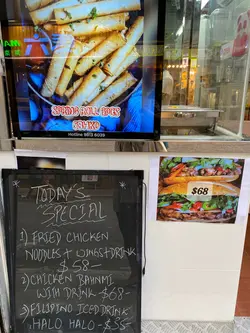 SPRING ROLL
Hotline
$68
TODAY'S
SPECIAL
1) FRIED CHICKEN
NOODLES + WINGS+DRINK
$58-
2) CHICKEN BAHNMI
WITH DRINK $68-
3) FILIPINO ICED DRINK
HALO HALO - $55-